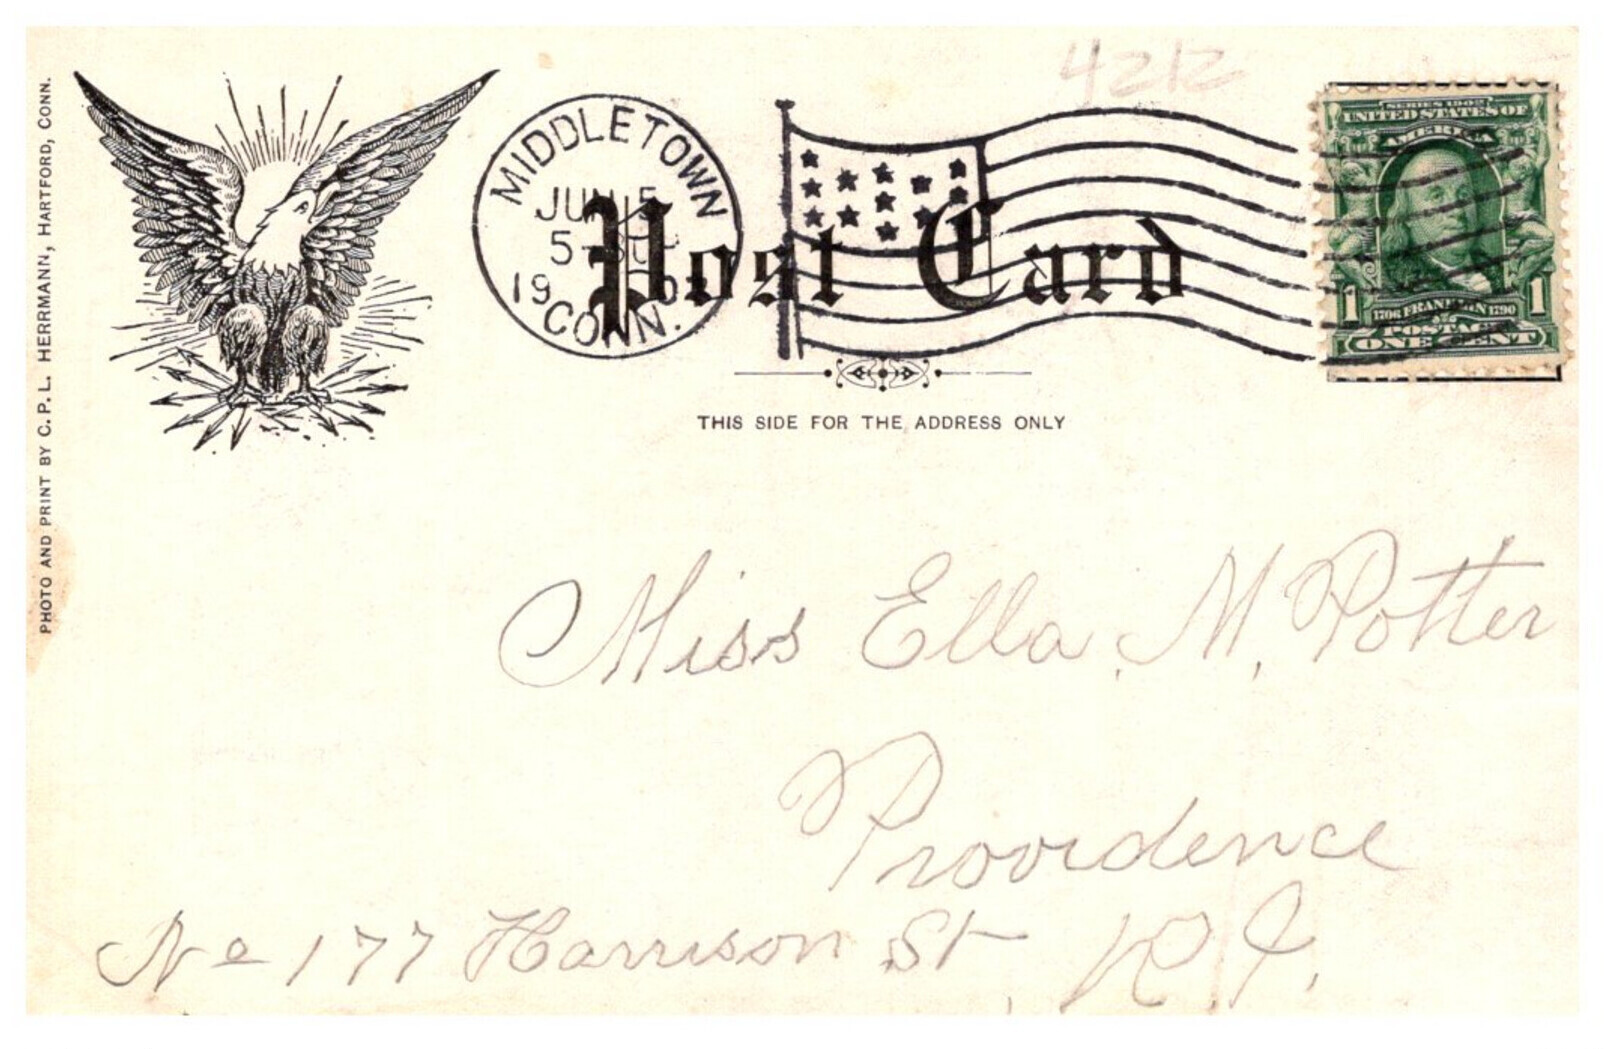 PHOTO AND PRINT BY C. P. L. HERRMANN, HARTFORD, CONN.
4212
MIDDLETOWN
JUN 5
5-
19 0
CONN.
Post Card
SERIES 1902
UNITED STATES OF
AMERICA
1 1706 FRANKLIN 1790 1
POSTAGE
ONE CENT
THIS SIDE FOR THE ADDRESS ONLY
Miss Ella M. Potter
Providence
No 177 Harrison St R.I.